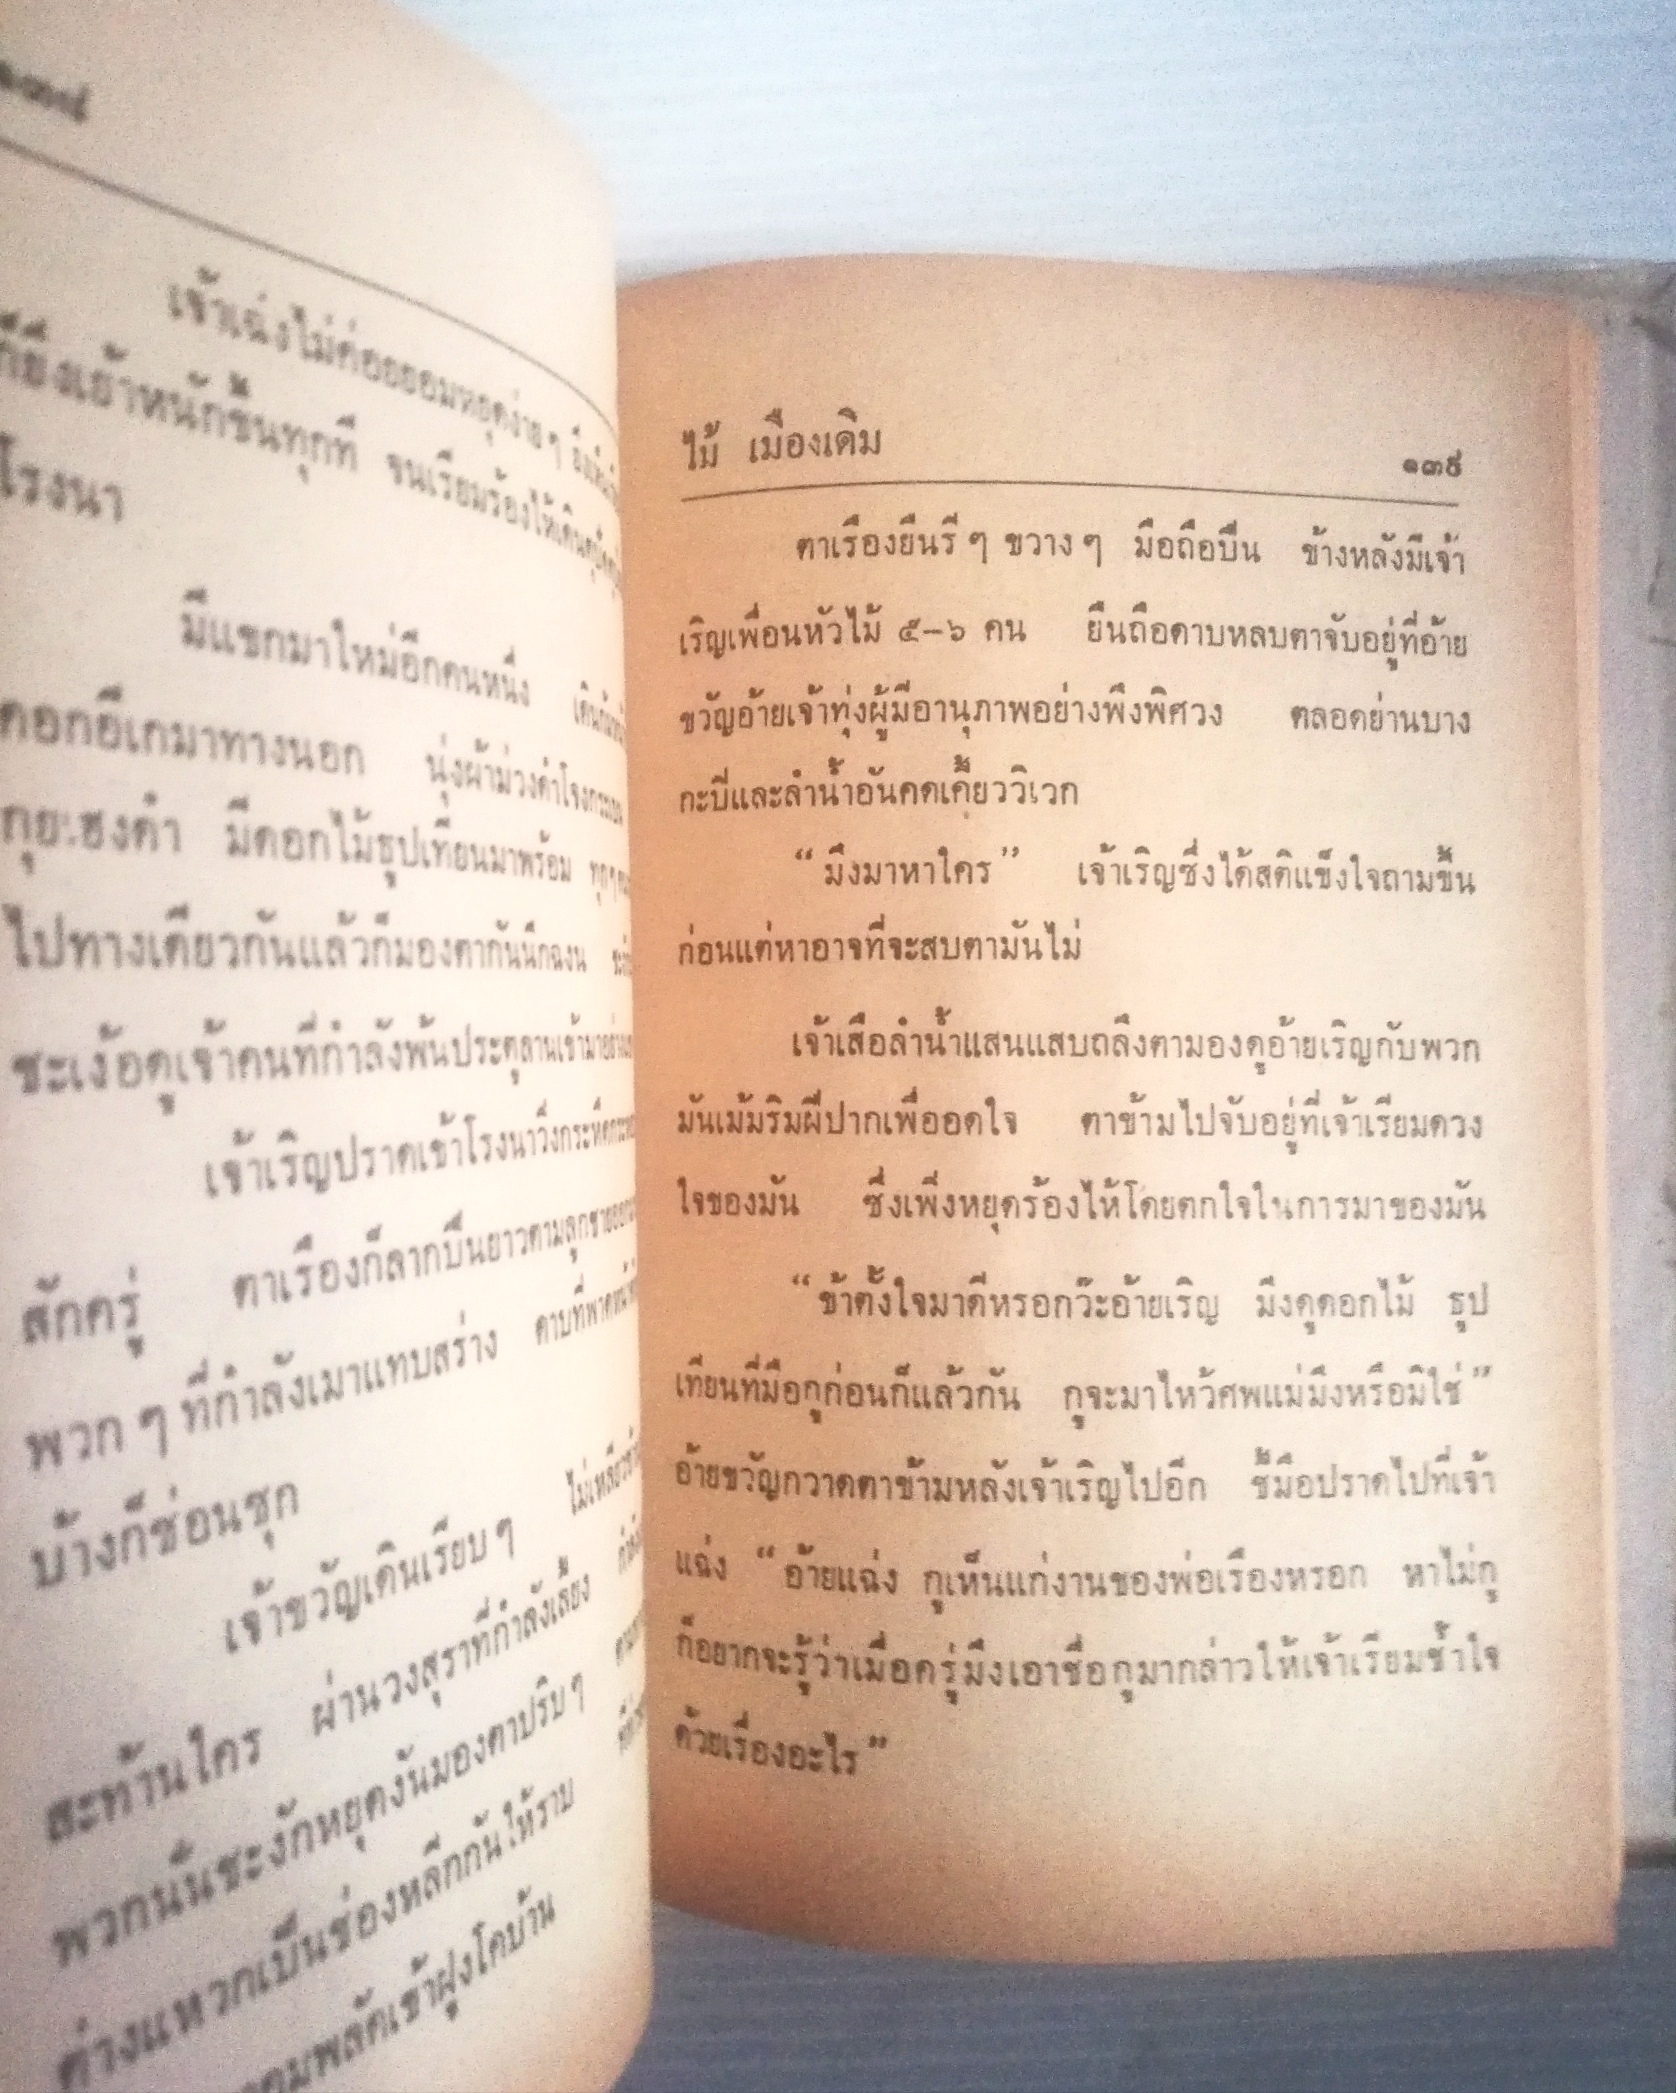 เจ้าแฉ่งไม่ค่อยยอมหยุดง่าย ๆ
ก็ยิ่งเย้าหนักขึ้นทุกที จนเรียมร้องไห้เดิน
โรงนา
มีแขกมาใหม่อีกคนหนึ่ง
ดอกอีเกมาทางนอก นุ่งผ้าม่วงดำโจงกระเบน
กุยเฮงดำ มีดอกไม้ธูปเทียนมาพร้อม ทุก ๆ
ไปทางเดียวกันแล้วก็มองตากันนึกฉงน
ชะเง้อดูเจ้าคนที่กำลังพ้นประตูลานเข้ามา
เจ้าเริญปราดเข้าโรงนาวิ่งกระหืดกระหอบ
สักครู่ ตาเรืองก็ลากปืนยาวตามลูกชาย
พวก ๆ ที่กำลังเมาแทบสร่าง ดาบที่พาด
บ้างก็ซ่อนซุก
เจ้าขวัญเดินเรียบ ๆ ไม่เหลียว
สะท้านใคร ผ่านวงสุราที่กำลังเลี้ยง
พวกนั้นชะงักหยุดงันมองตาปริบ ๆ
ต่างแหวกเป็นช่องหลีกกันให้ราบ
พลัดเข้าฝูงโคบ้าน
ไม้ เมืองเดิม
๑๓๙
ตาเรืองยืนรี ๆ ขวาง ๆ มือถือปืน ข้างหลังมีเจ้า
เริญเพื่อนหัวไม้ ๕-๖ คน ยืนถือดาบหลบตาจับอยู่ที่อ้าย
ขวัญอ้ายเจ้าทุ่งผู้มีอานุภาพอย่างพึงพิศวง ตลอดย่านบาง
กะบีและลำน้ำอันคดเคี้ยววิเวก
“มึงมาหาใคร” เจ้าเริญซึ่งได้สติแข็งใจถามขึ้น
ก่อนแต่หาอาจที่จะสบตามันไม่
เจ้าเสือลำน้ำแสนแสบถลึงตามองดูอ้ายเริญกับพวก
มันเม้มริมฝีปากเพื่ออดใจ ตาข้ามไปจับอยู่ที่เจ้าเรียมดวง
ใจของมัน ซึ่งเพิ่งหยุดร้องไห้โดยตกใจในการมาของมัน
“ข้าตั้งใจมาดีหรอกว๊ะอ้ายเริญ มึงดูดอกไม้ ธูป
เทียนที่มือกูก่อนก็แล้วกัน กูจะมาไหว้ศพแม่มึงหรือมิใช่”
อ้ายขวัญกวาดตาข้ามหลังเจ้าเริญไปอีก ชี้มือปราดไปที่เจ้า
แฉ่ง “อ้ายแฉ่ง กูเห็นแก่งานของพ่อเรืองหรอก หาไม่กู
ก็อยากจะรู้ว่าเมื่อครู่มึงเอาชื่อกูมากล่าวให้เจ้าเรียมช้ำใจ
ด้วยเรื่องอะไร”